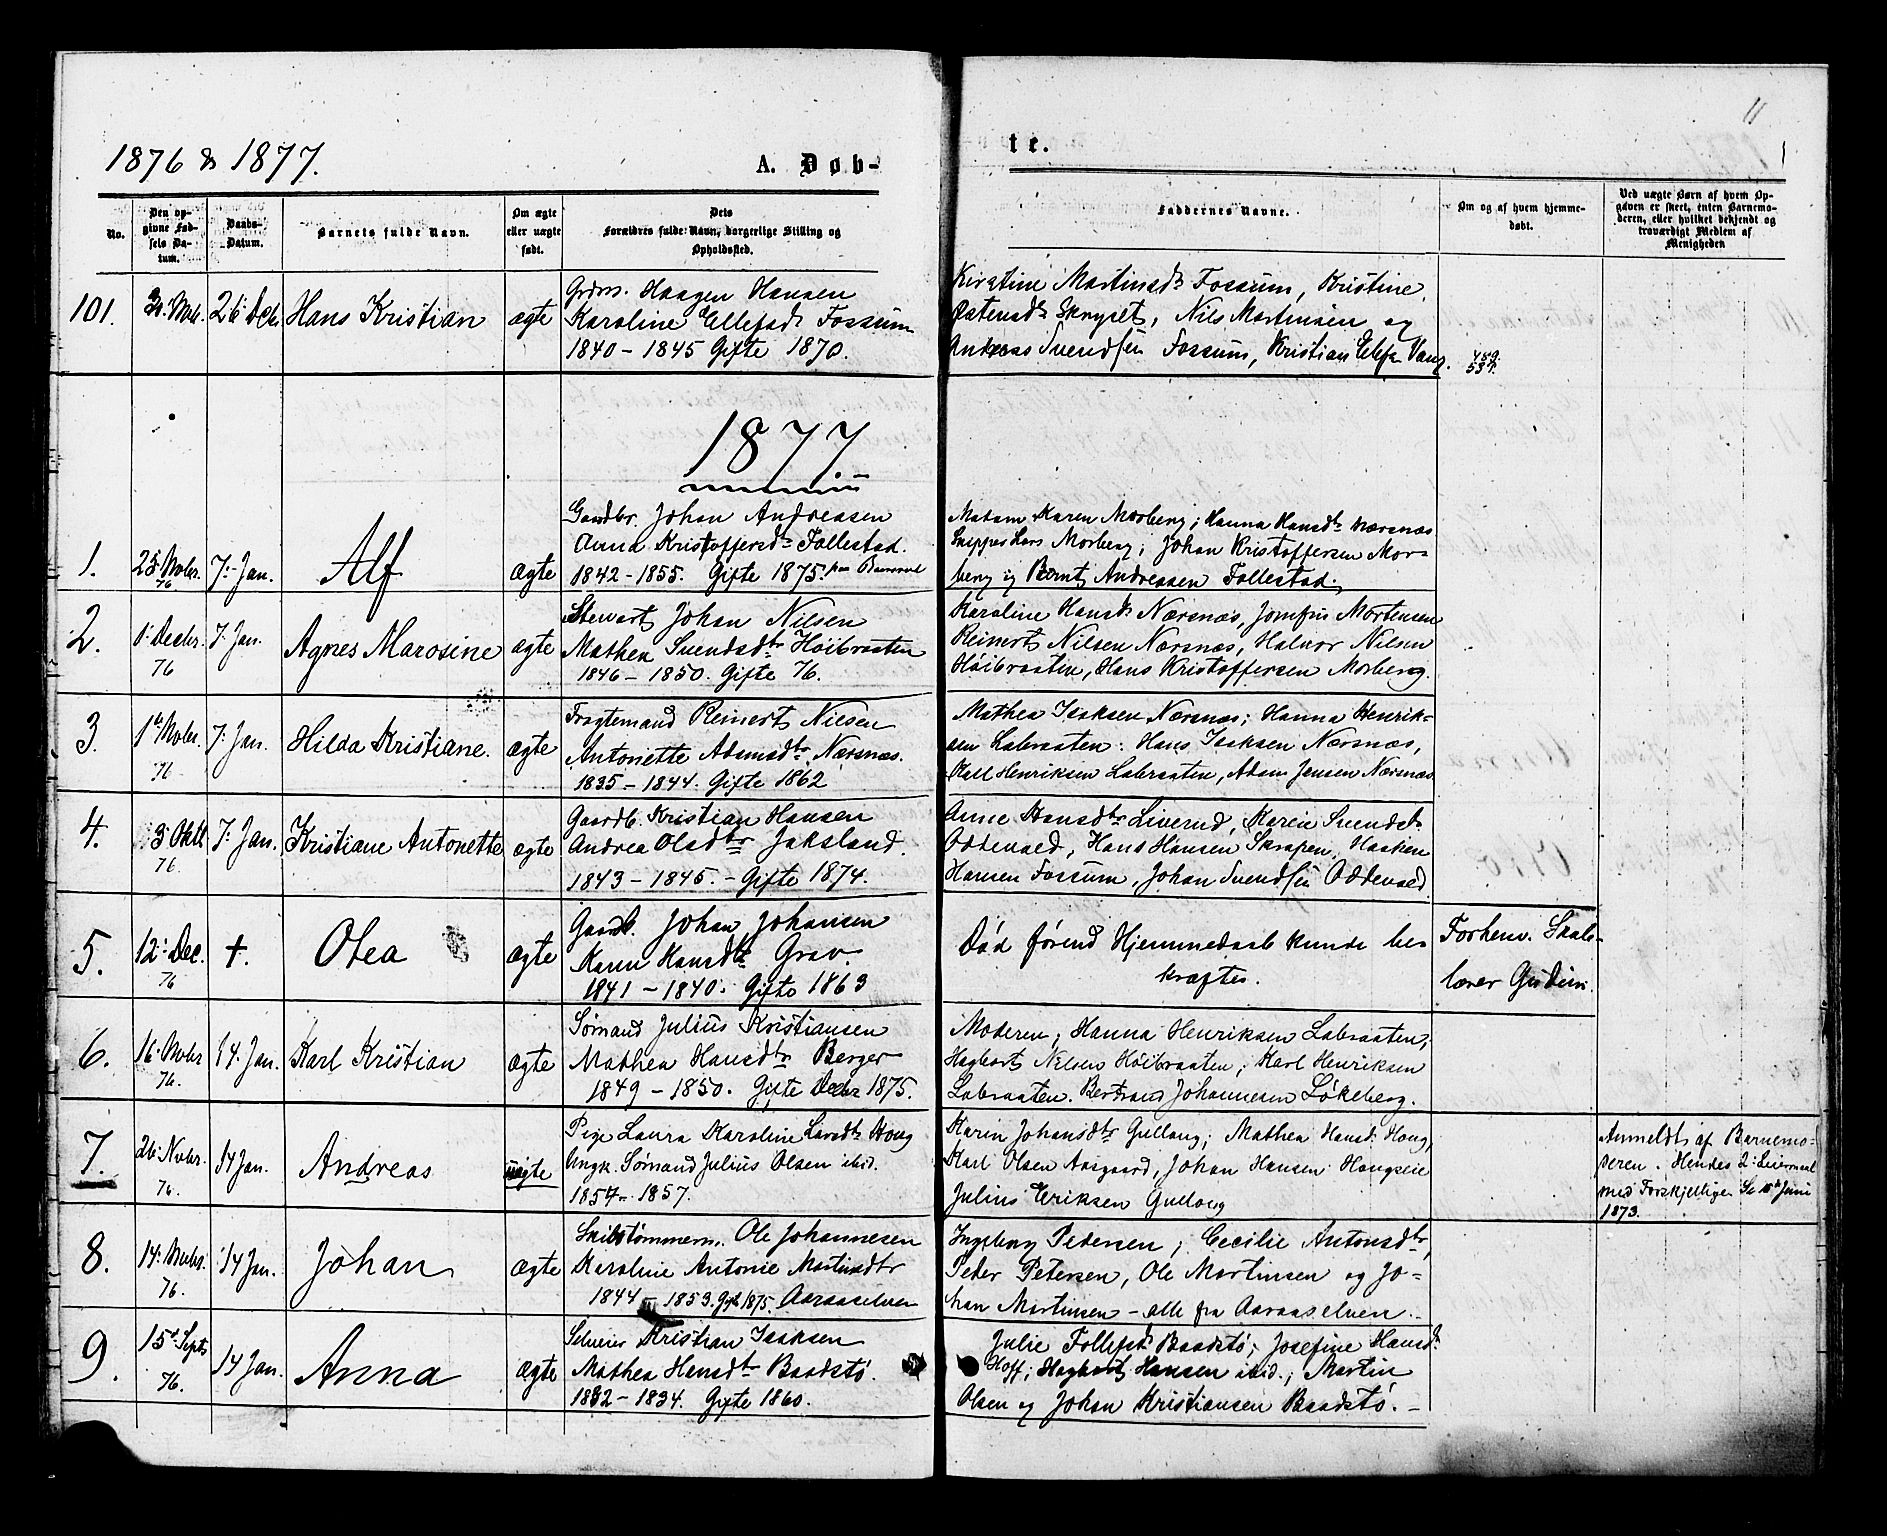 11
1876 & 1877.
A. Døb-
te.
No.
Den op-
givne Fød-
sels Da-
tum.
Daabs-
Datum.
Barnets fulde Navn.
Om ægte
eller uægte
født.
Dets
Forældres fulde Navn, borgerlige Stilling og
Opholdssted.
Faddernes Navne.
Om og af hvem hjemme-
døbt.
Ved uægte Børn af hvem Op-
gaven er skeet, enten Barnemo-
deren, eller hvilket bekjendt og
troværdigt Medlem af
Menigheden
101.
Nobr.
26 Decbr.
Hans Kristian
ægte
Grdm. Haagen Hansen
Karoline Ellefsd. Fossum
1840 - 1845 Gifte 1870.
Kirstine Martinsdt. Fossum, Kristine
Nils Martinsen og
Andreas Svendsen Fossum, Kristian Ellefs. Vang.
489.
537.
1877
1.
25 Nobr.
76
7. Jan.
Alf
ægte
Gaardbr. Johan Andreassen
Anna Kristoffersdt. Follestad.
1842 - 1855. Gifte 1875.
Madam Karen Morberg; Hanna Hansdt. Nærsnæs
Lars Morberg; Johan Kristoffersen Mor-
berg og Bernt Andreassen Follestad.
2.
1. Decbr.
76
7. Jan.
Agnes Marosine
ægte
Stewart Johan Nilsen
Mathea Svendsdtr. Høibraaten
1846 - 1850. Gifte 76.
Karoline Hansdt. Nærsnæs, Jomfru Mortensen
Reinert Nilsen Nærsnæs, Halvor Nilsen
Høibraaten, Hans Kristoffersen Morberg.
3.
Nobr.
76
7. Jan.
Hilda Kristiane.
ægte
Fragtemand Reinert Nilsen
Antonette Adamsdtr. Nærsnæs.
1835 - 1844. Gifte 1862
Mathea Isaksen Nærsnæs; Hanna Henrik-
sen Labraaten: Hans Isaksen Nærsnæs,
Karl Henriksen Labraaten, Adam Jensen Nærsnæs
4.
3 Oktb
76.
7. Jan.
Kristiane Antonette
ægte
Gaardb. Kristian Hansen
Andrea Olsdtr. Jaksland.
1843 - 1845. - Gifte 1874.
Anne Hansdtr. Liverud, Karen Svendsdt.
Oddevald, Hans Hansen Skrapen, Haaken
Hansen Fossum, Johan Svendsen Oddevald
5.
12. Dec.
76
+.
Olea
ægte
Gaardb. Johan Johansen
Karen Hansdt. Grav.
1841 - 1840. Gifte 1863
Død førend Hjemmedaab kunde be-
kræftes.
Forhenv. Skole-
lærer
6.
16. Nobr
76.
14. Jan.
Karl Kristian
ægte
Sømand Julius Kristiansen
Mathea Hansdtr. Berger
1849 - 1850. Gifte Decbr 1875.
Moderen; Hanna Henriksen Labraaten,
Hagbart Nilsen Høibraaten; Karl Henriksen
Labraaten. Bertrand Johannesen Løkeberg.
7.
26. Nobr.
76.
14 Jan.
Andreas
uægte
Pige Laura Karoline Larsdt. Houg
Ungk. Sømand Julius Olsen ibid.
1854 - 1857.
Karin Johansdtr. Gullaug; Mathea Hansdt. Houg,
Karl Olsen Aasgaard, Johan Hansen
Julius Eriksen Gullaug
Anmeldt af Barnemo-
deren. Hendes 2. Leiermaal
med Forskjellige. Se Juni
1873.
8.
14. Nobr.
76.
14 Jan.
Johan
ægte
Skibstømmerm. Ole Johannesen
Karoline Antonie Martinsdtr
1844 - 1853. Gift 1875. Aaraaselven
Ingeborg Pedersen; Cecilie Antonsdtr,
Peder Petersen, Ole Martinsen og Jo-
han Martinsen - alle fra Aaraaselven.
9.
15. Septb
76.
14 Jan.
Anna
ægte
Selveier Kristian Isaksen
Mathea Hansdtr. Baadstø.
1832 - 1834. Gifte 1860.
Julie Baadstø; Josefine Hansdt.
Hoff; Hagbart Hansen ibid.; Martin
Olsen og Johan Kristiansen Baadstø. -